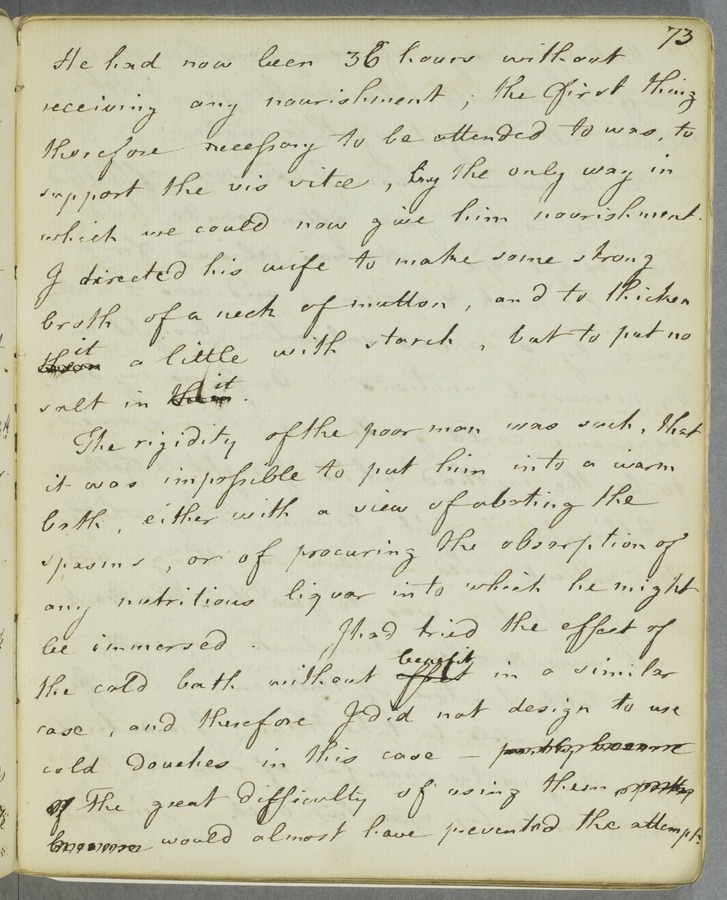 73
He had now been 36 hours without
receiving any nourishment; the first thing
therefore necessary to be attended to was, to
support the vis vitæ, by the only way in
which we could now give him nourishment.
I directed his wife to make some strong
broth of a neck of mutton, and to thicken
them it a little with starch, but to put no
salt in them it.
The rigidity of the poor man was such, that
it was impossible to put him into a warm
bath, either with a view of abating the
spasms, or of procuring the absorption of
any nutritious liquor into which he might
be immersed. I had tried the effect of
the cold bath without effect benefit in a similar
case, and therefore I did not design to use
cold douches in this case – partly because
of The great difficulty of using them partly
because would almost have prevented the attempt.